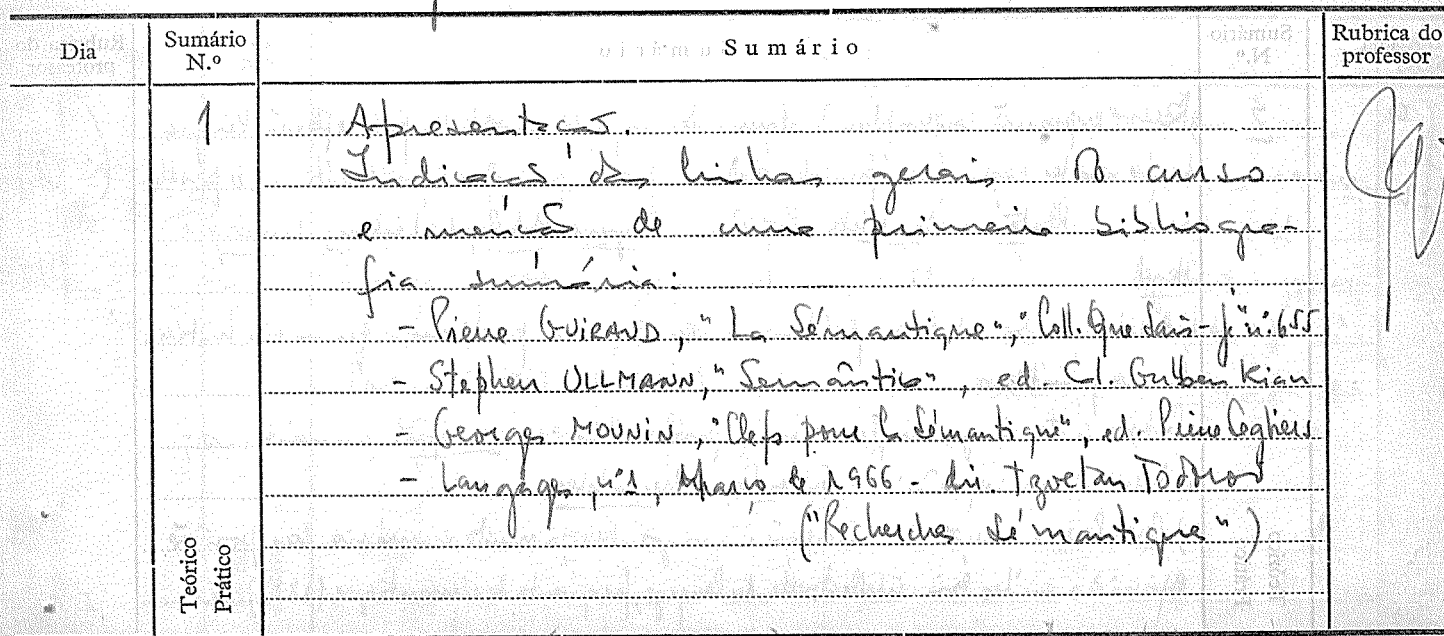 Dia
Sumário N.º
Sumário
Rubrica do professor
1
Apresentação.
Indicação das linhas gerais do curso
e menção de uma primeira bibliogra-
fia sumária:
- Pierre GUIRAUD, "La Sémantique", "Coll. Que Sais-je" nº 655
- Stephen ULLMANN, "Semântica", ed. Cl. Gulbenkian
- Georges MOUNIN, "Clefs pour la Sémantique", ed. Pierre Seghers
- Langages, nº 1, Março de 1966 - dir. Tzvetan Todorov
("Recherches Sémantique")
Teórico
Prático